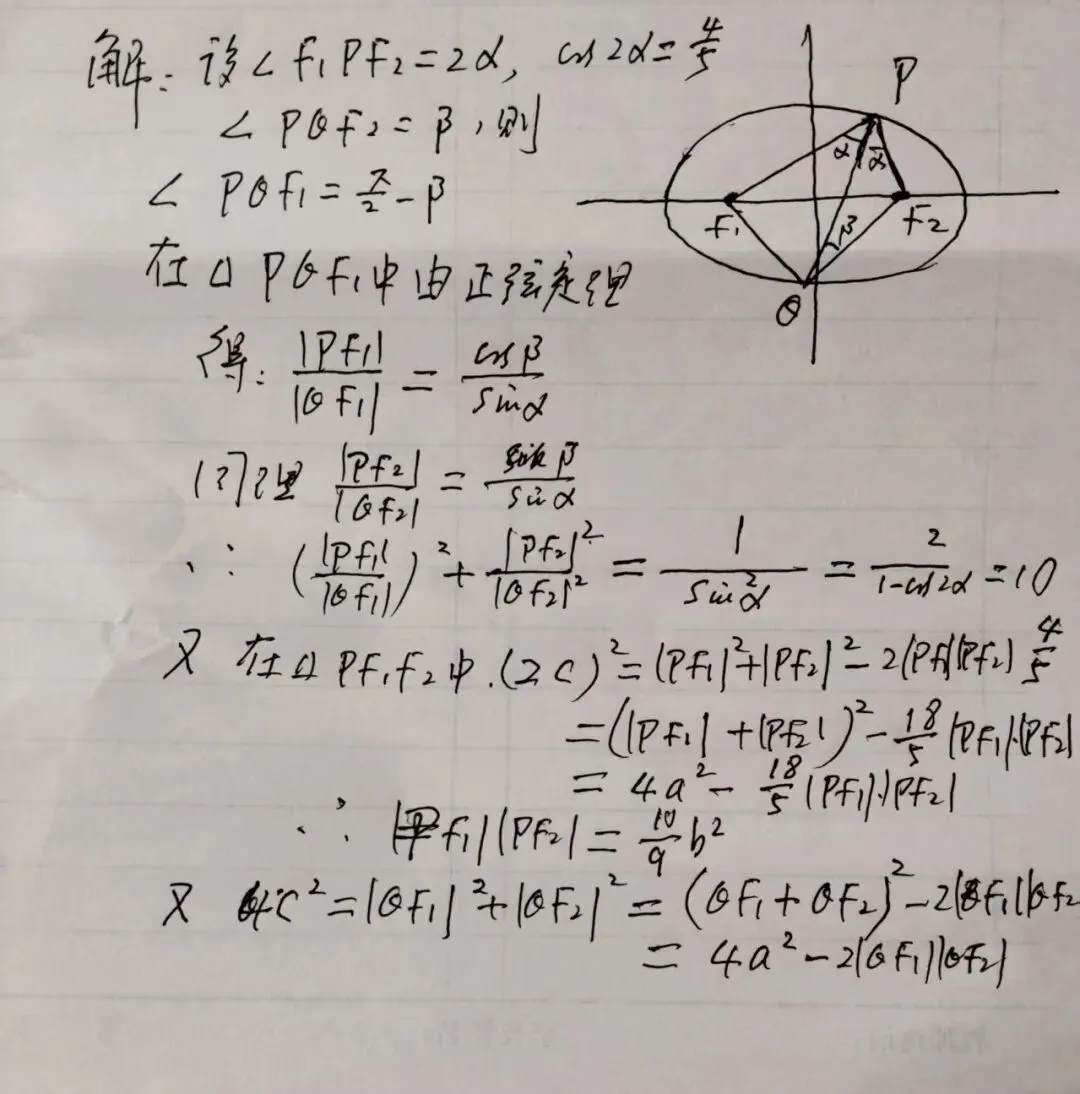 解: 设∠F₁PF₂=2α, cos2α=4/5
∠PQF₂=β,则
∠PQF₁=π/2-β
在△PQF₁中由正弦定理
得: |PF₁|/|QF₁| = cosβ/sinα
同理 |PF₂|/|QF₂| = sinβ/sinα
∴ (|PF₁|/|QF₁|)² + |PF₂|²/|QF₂|² = 1/sin²α = 2/(1-cos2α) = 10
又 在△PF₁F₂中.(2c)²=|PF₁|²+|PF₂|²-2|PF₁||PF₂| 4/5
=(|PF₁|+|PF₂|)²-18/5|PF₁|·|PF₂|
= 4a² - 18/5|PF₁|·|PF₂|
∴ |PF₁||PF₂| = 10/9 b²
又 4c²=|QF₁|²+|QF₂|²=(QF₁+QF₂)²-2|QF₁||QF₂
= 4a²-2|QF₁||QF₂|
P
α
α
F₁
F₂
β
Q